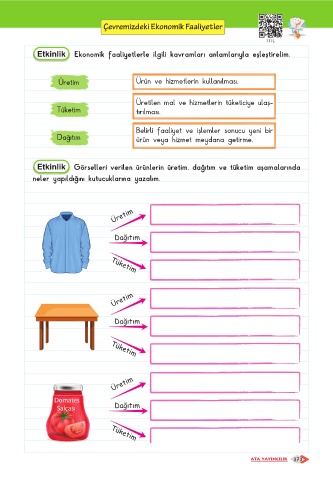 Çevremizdeki Ekonomik Faaliyetler
Etkinlik Ekonomik faaliyetlerle ilgili kavramları anlamlarıyla eşleştirelim.
Üretim
Ürün ve hizmetlerin kullanılması.
Tüketim
Üretilen mal ve hizmetlerin tüketiciye ulaş-
tırılması.
Dağıtım
Belirli faaliyet ve işlemler sonucu yeni bir
ürün veya hizmet meydana getirme.
Etkinlik Görselleri verilen ürünlerin üretim, dağıtım ve tüketim aşamalarında
neler yapıldığını kutucuklarına yazalım.
Üretim
Dağıtım
Tüketim
Üretim
Dağıtım
Tüketim
Domates
Salçası
Üretim
Dağıtım
Tüketim
ATA YAYINCILIK